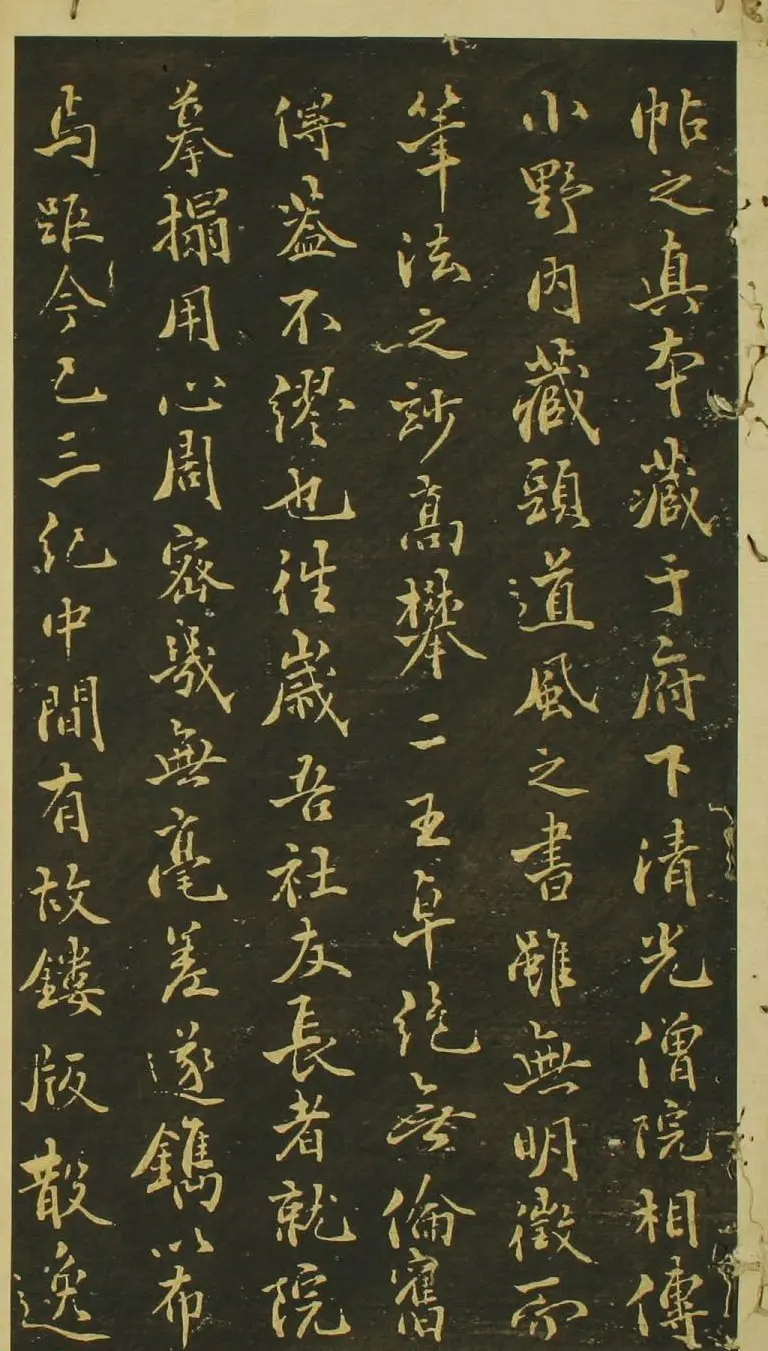 帖之真本藏于府下清光僧院相傳
小野内藏頭道風之書雖無明徵而
筆法之妙高攀二王卓絶無倫舊
傳蓋不繆也往歲吾社友長者就院
摹搨用心周密幾無毫差遂鐫以布
焉距今已三紀中間有故鏤版散逸